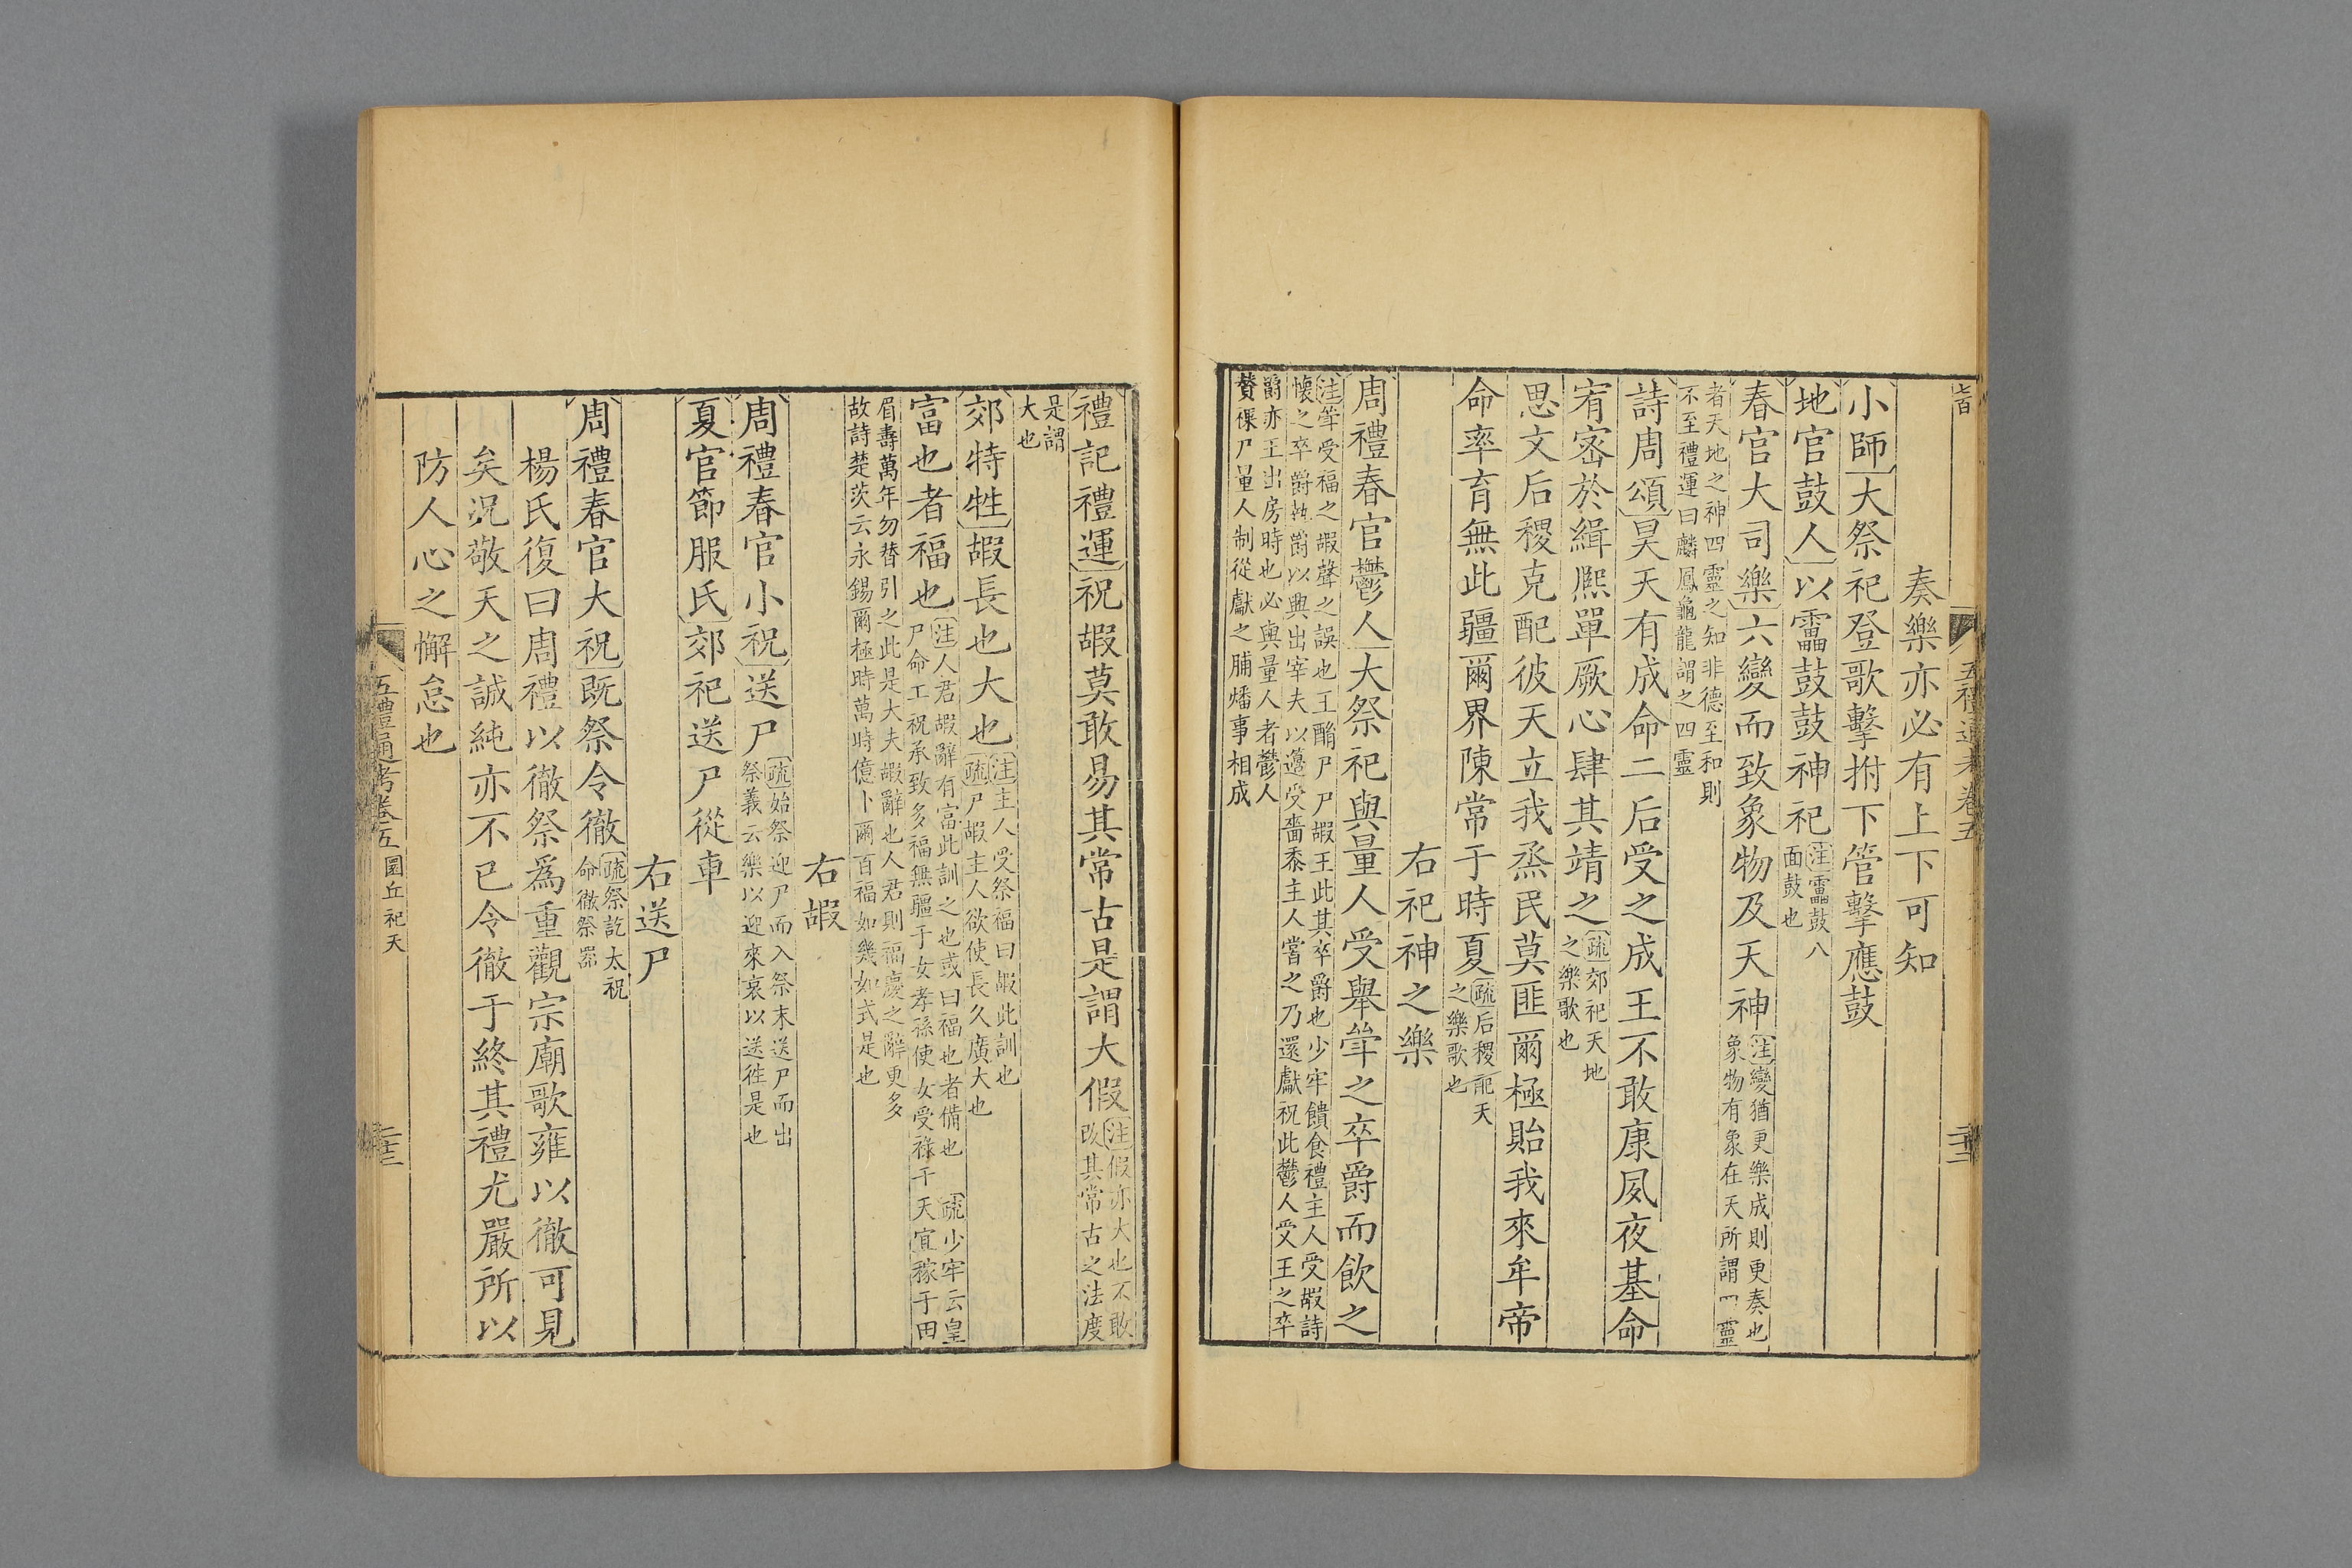 奏樂亦必有上下可知
小師大祭祀登歌擊拊下管擊應鼓
地官鼓人以靁鼓鼓神祀注靁鼓八
面鼓也
春官大司樂六變而致象物及天神注變猶更樂成則更奏也
象物有象在天所謂四靈
者天地之神四靈之知非德至和則
不至禮運曰麟鳳龜龍謂之四靈
詩周頌昊天有成命二后受之成王不敢康夙夜基命
宥宻於緝熈單厥心肆其靖之疏郊祀天地
之樂歌也
思文后稷克配彼天立我烝民莫匪爾極貽我來牟帝
命率育無此疆爾界陳常于時夏疏后稷配天
之樂歌也
右祀神之樂
周禮春官鬱人大祭祀與量人受舉斝之卒爵而飲之
注斝受福之嘏聲之誤也王酳尸尸嘏王此其卒爵也少牢饋食禮主人受嘏詩
懐之卒爵執爵以興出宰夫以籩受嗇黍主人嘗之乃還獻祝此鬱人受王之卒
爵亦王出房時也必與量人者鬱人
賛祼尸量人制從獻之脯燔事相成
禮記禮運祝嘏莫敢易其常古是謂大假注假亦大也不敢
改其常古之法度
是謂
大也
郊特牲嘏長也大也注主人受祭福曰嘏此訓也
疏尸嘏主人欲使長久廣大也
富也者福也注人君嘏辭有富此訓之也或曰福也者備也 疏少牢云皇
尸命工祝承致多福無疆于女孝孫使女受祿于天宜稼于田
眉壽萬年勿替引之此是大夫嘏辭也人君則福慶之辭更多
故詩楚茨云永錫爾極時萬時億卜爾百福如幾如式是也
右嘏
周禮春官小祝送尸疏始祭迎尸而入祭末送尸而出
祭義云樂以迎來哀以送徃是也
夏官節服氏郊祀送尸從車
右送尸
周禮春官大祝既祭令徹疏祭訖太祝
命徹祭器
楊氏復曰周禮以徹祭爲重觀宗廟歌雍以徹可見
矣況敬天之誠純亦不已令徹于終其禮尤嚴所以
防人心之懈怠也
五禮通考卷五 圜丘祀天